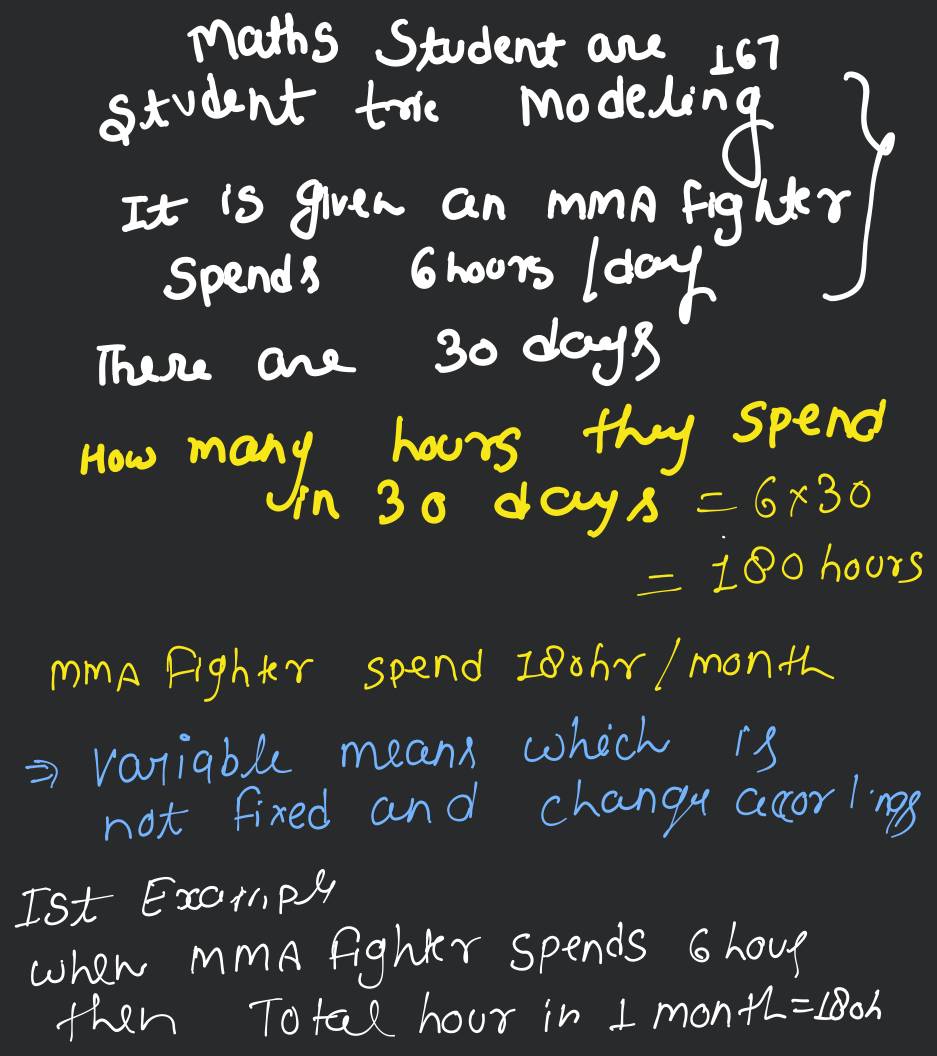 Maths Student are 167
Student tric Modeling
It is given an MMA fighter
Spends 6 hours / day
There are 30 days
How many hours they spend
in 30 days = 6 × 30
= 180 hours
MMA fighter spend 180hr / month
⇒ Variable means which is
not fixed and change accorlings
Ist Example
when MMA fighter spends 6 hour
then Total hour in 1 month = 180h